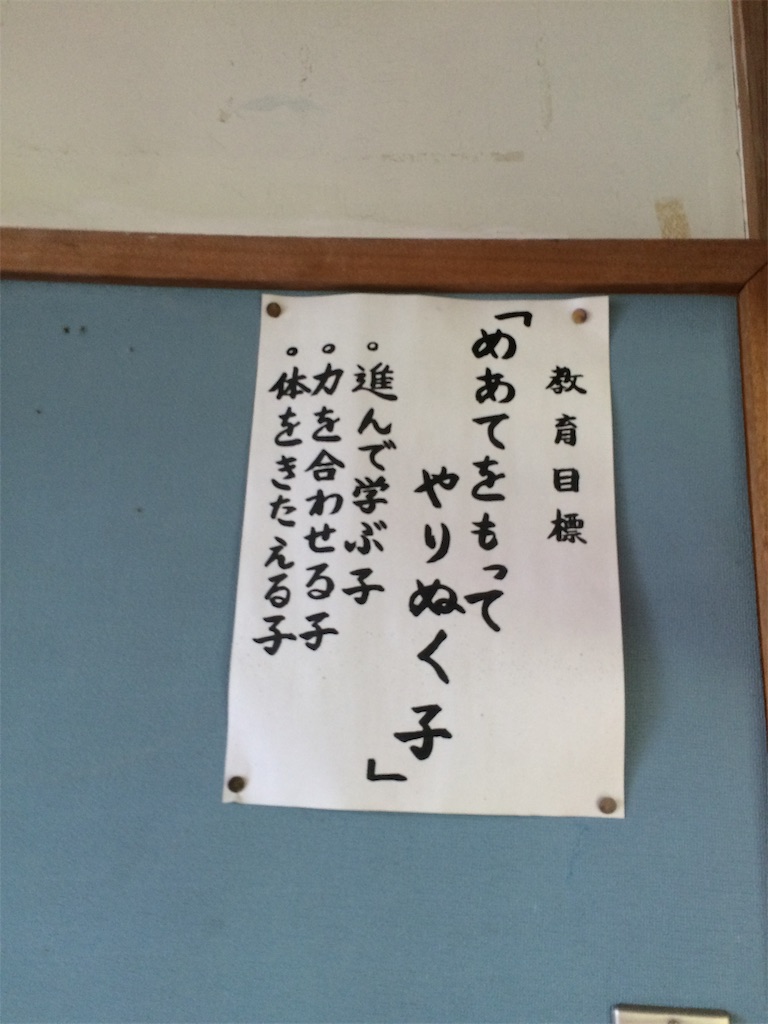 教育目標
「めあてをもって
やりぬく子」
。進んで学ぶ子
。力を合わせる子
。体をきたえる子